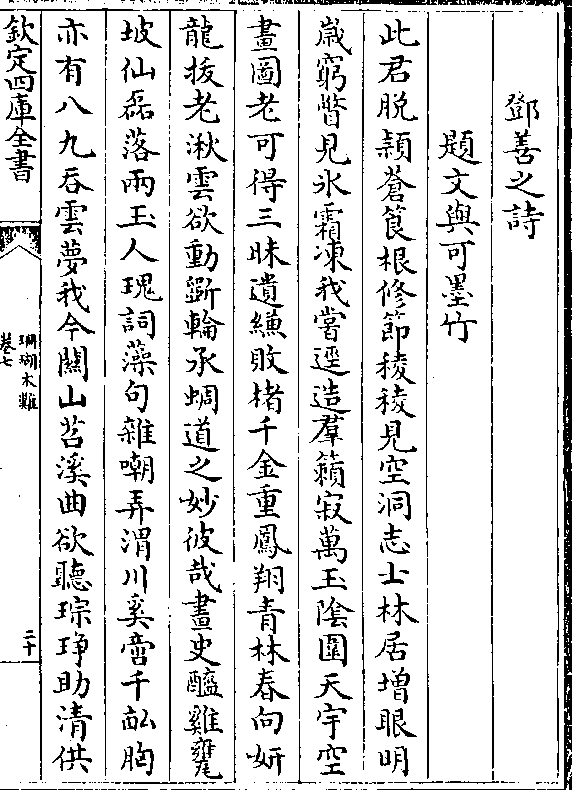 鄧善之詩
題文與可墨竹
此君脱頴蒼筤根修節稜稜見空洞志士林居增眼明
嵗窮瞥見氷霜凍我嘗逕造羣籟寂萬玉陰圍天宇空
畫圖老可得三昧遺縑敗楮千金重鳳翔青林春向妍
龍拔老湫雲欲動斵輪承蜩道之妙彼哉畫史醯雞甕
坡仙磊落兩玉人瑰詞藻句雜嘲弄渭川奚啻千畝胸
亦有八九吞雲夢我今關山苕溪曲欲聽琮琤助清供
欽定四庫全書
珊瑚木難
卷七
二十